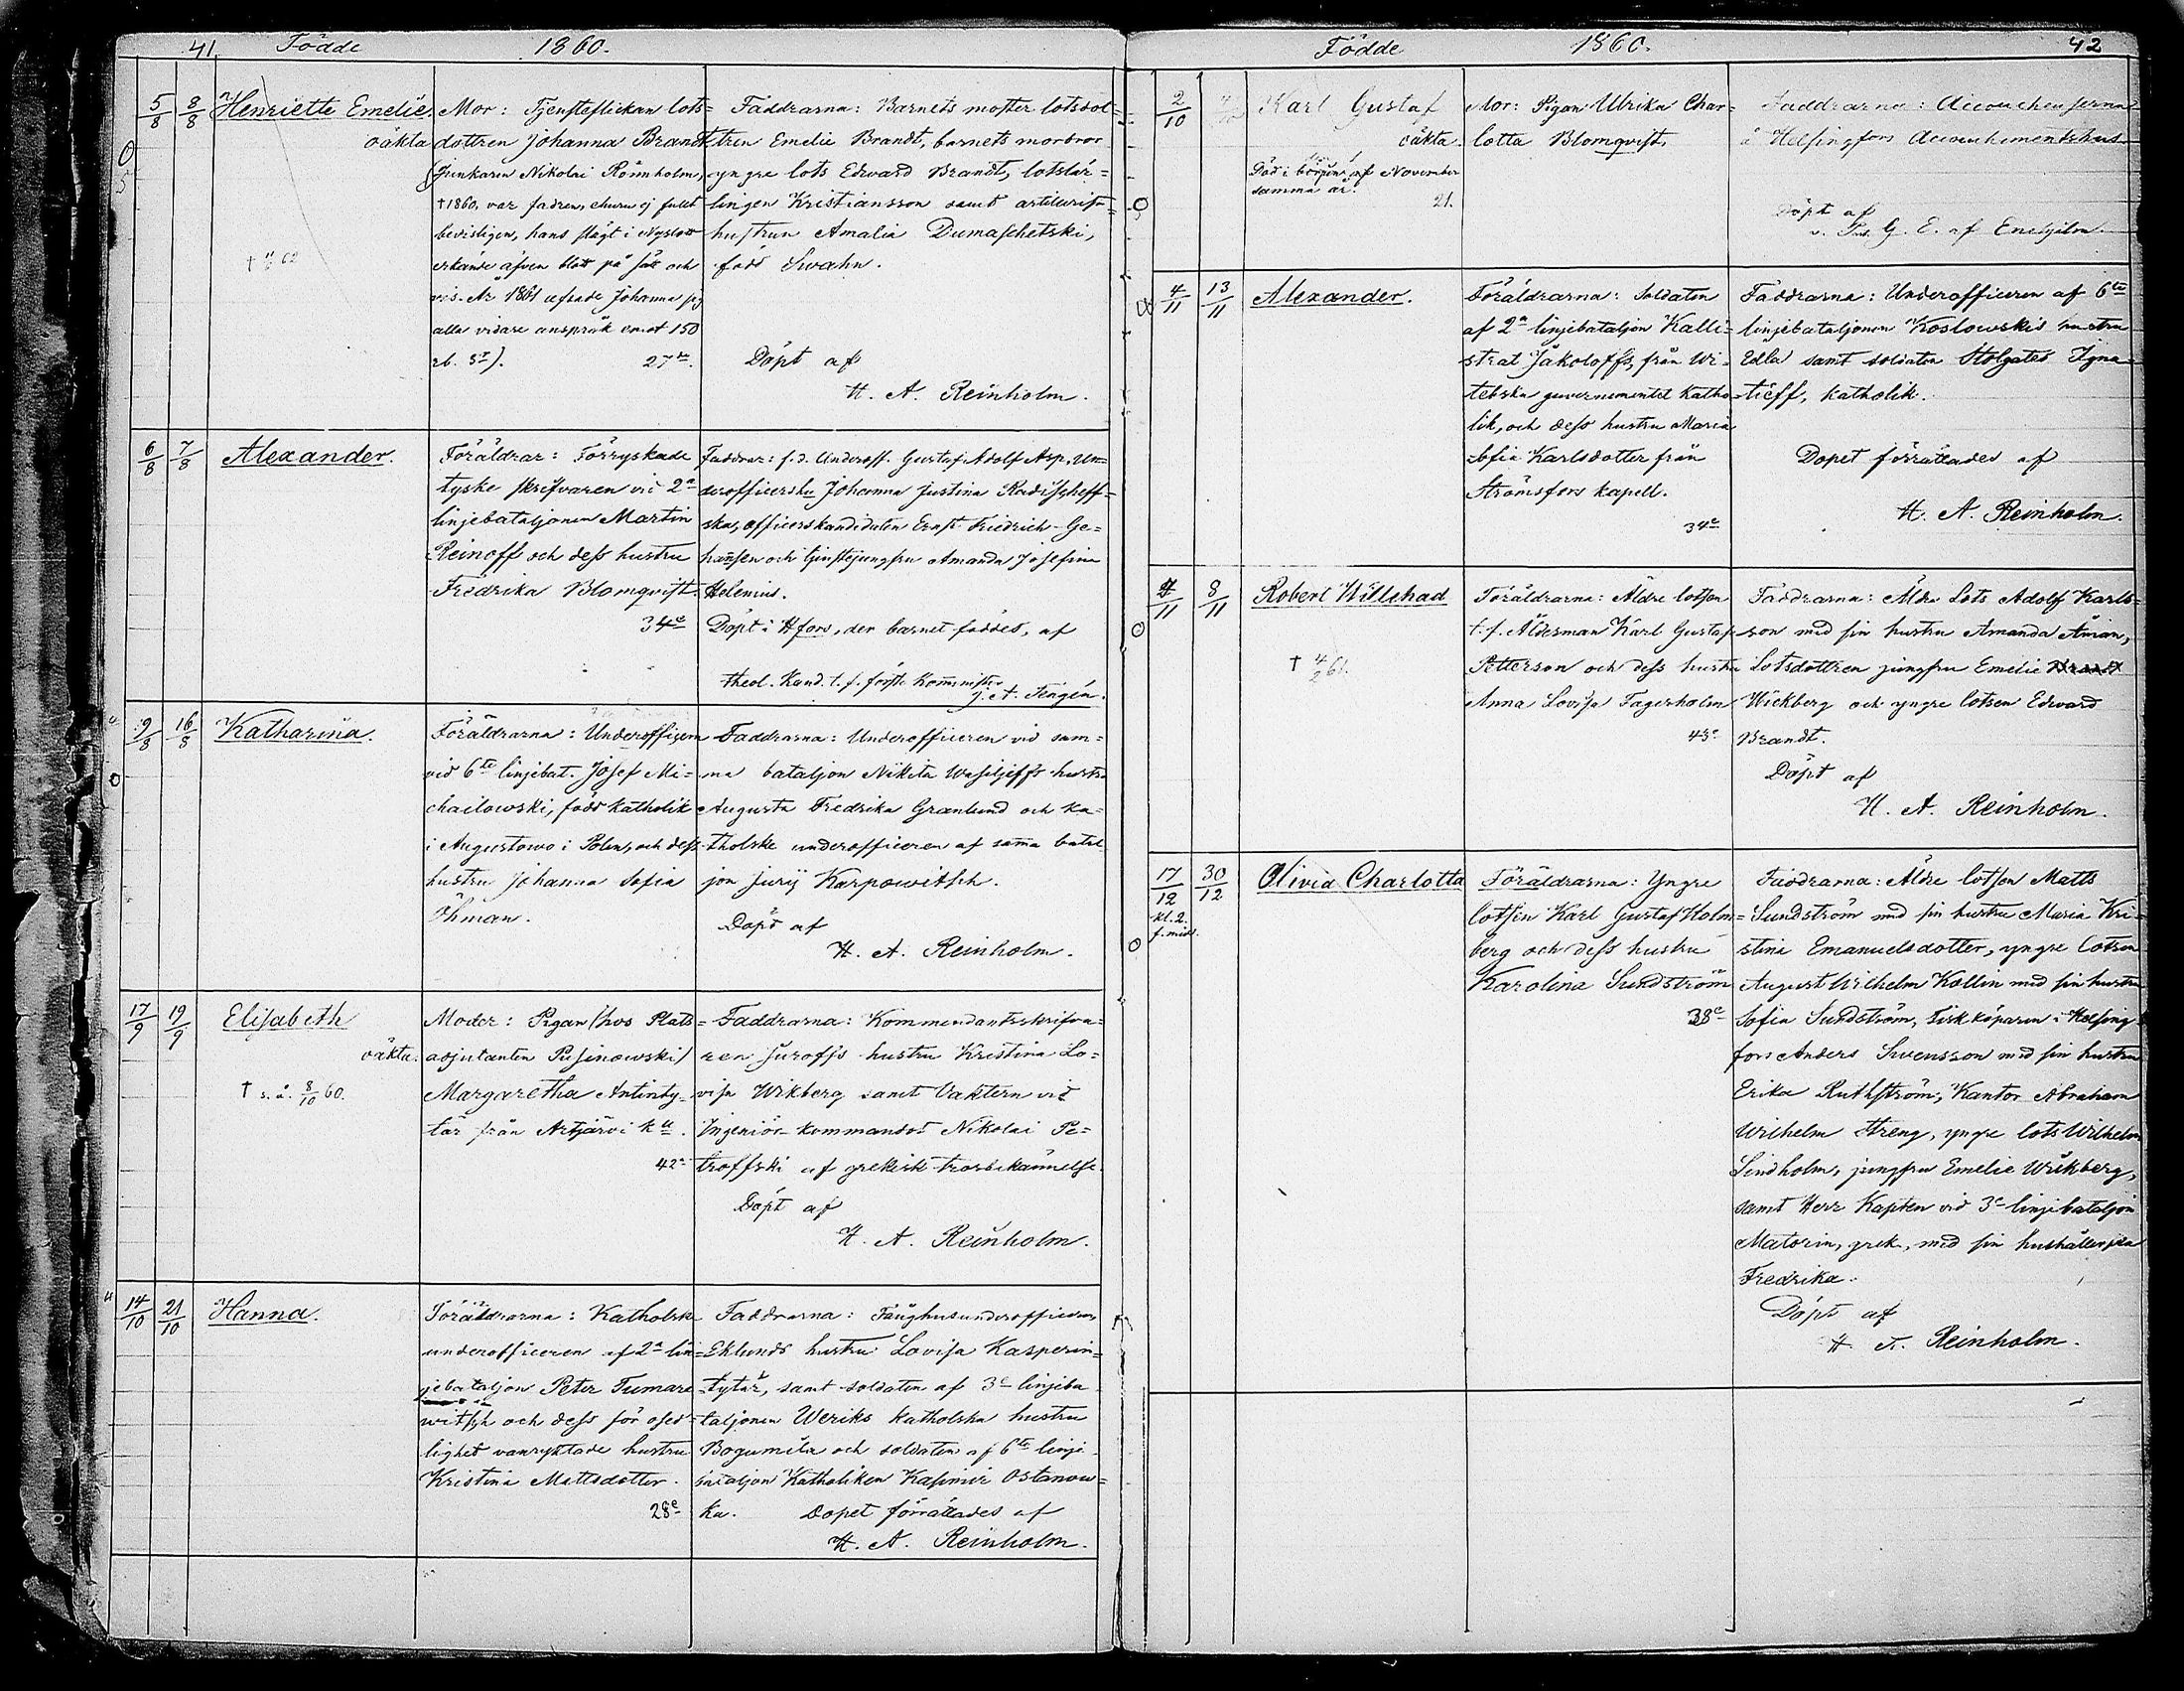 41. Födde 1860.
5/8 8/8 Henriette Emelie.
oäkta
† 62
Mor: Tjensteflickan lots=
dottren Johanna Brandt
(Junkaren Nikolai Rönnholm,
† 1860, var fadren, ehuru ej fullt
bevisligen, hans slägt i Nyslott
erkände äfven blott på sätt och
vis. År 1861 afsade Johanna sig
alla vidare anspråk emot 150
rb. Sr). 27de.
Faddrarna: Barnets moster lotsdot=
tren Emelie Brandt, barnets morbror
yngre lots Edward Brandt, lotslär=
lingen Kristiansson samt artilleristhustrun Amalia Dumaschetski,
född Swahn.
Döpt af
H. A. Reinholm.
6/8 7/8 Alexander.
Föräldrar: Förryskade
tyske skrifvaren vid 2a
linjebataljonen Martin
Reinoff och dess hustru
Fredrika Blomqvist.
34e
Faddrar: f.d. Underoff. Gustaf Adolf Asp, Un=
derofficerska Johanna Justina Radischeff=
ska, officerskandidaten Ernst Friedrich Ge=
hansen och tjenstejungfru Amanda Josefina
Helenius.
Döpt i Hfors, der barnet föddes, af
Theol. Kand. t. f. förste Kommister
J. A. Tengén.
9/8 16/8 Katharina.
Föräldrarna: Underofficern
vid 6te linjebat. Josef Mi=
chailowski, född katholik
i Augustowo i Polen, och dess
hustru Johanna Sofia
Öhman.
Faddrarna: Underofficeren vid sam=
ma bataljon Nikita Wasiljeffs hustru
Augusta Fredrika Granlund och ka=
tholske underofficeren af samma batal
jon Jurij Karpowitsch.
Döpt af
H. A. Reinholm.
17/9 19/9 Elisabeth
oäkta.
† s. å. 8/10 60.
Moder: Pigan (hos Plats=
adjutanten Pusinowski)
Margaretha Antinty=
tär från Artjärvi kll.
42a
Faddrarna: Kommendantsskrifva=
ren Juroffs hustru Kristina Lo=
visa Wikberg samt Vaktern vid
Ingeniör-kommandot Nikolai Pe=
troffski af grekisk trosbekännelse.
Döpt af
H. A. Reinholm.
14/10 21/10 Hanna.
Föräldrarna: Katholske
underofficeren af 2a lin=
jebataljon Peter Tumare
witsch och dess för osed=
lighet vanryktade hustru
Kristina Mattsdotter.
28e
Faddrarna: Fånghusunderofficeren
Eklunds hustru Lovisa Kasperin=
tytär, samt soldaten af 3e linjeba
taljonen Weriks katholska hustru
Bogumila och soldaten af 6te linje
bataljon Katholiken Kasimir Ostanow=
ka. Dopet förrättades af
H. A. Reinholm.
Födde 1860. 42
2/10 Karl Gustaf
oäkta.
Död i början af November
samma år.
Mor: Pigan Ulrika Char=
lotta Blomqvist.
21.
Faddrarna: Accoucheuserna
å Helsingfors Accouchementshus.
Döpt af
v. Past. G. E. af Enehjelm.
4/11 13/11 Alexander.
Föräldrarna: Soldaten
af 2a linjebataljon Kalli=
strat Jakoloffs, från Wi=
tebska guvernementet katho=
lik, och dess hustru Maria
Sofia Karlsdotter från
Strömsfors kapell.
34e
Faddrarna: Underofficeren af 6te
linjebataljonen Koslowskis hustru
Edla samt soldaten Stolgates Igna=
tieff, katholik.
Dopet förrättades af
H. A. Reinholm.
4/11 8/11 Robert Willehad
† 4/2 61.
Föräldrarna: Äldre lotsen
t.f. Åldesman Karl Gustaf
Petterson och dess hustru
Anna Lovisa Fagerholm
43e
Faddrarna: Äldre Lots Adolf Karls=
son med sin hustru Amanda Åman,
Lotsdottren jungfru Emelie Brandt
Wickberg och yngre lotsen Edward
Brandt.
Döpt af
H. A. Reinholm.
17/12 30/12 Olivia Charlotta
kl. 2.
f. midd.
Föräldrarna: Yngre
lotsen Karl Gustaf Holm=
berg och dess hustru
Karolina Sundström
38e
Faddrarna: Äldre lotsen Matts
Sundström med sin hustru Maria Kri=
stina Emanuelsdotter, yngre lotsen
August Wilhelm Kollin med sin hustru
Sofia Sundström, Fiskköparen i Helsing
fors Anders Swensson med sin hustru
Erika Ruthström, Kantor Abraham
Wilhelm Streng, yngre lots Wilhelm
Lindholm, jungfru Emelie Wikberg,
samt Herr Kapten vid 3e linjebataljon
Matorin, grek, med sin hushållerska
Fredrika.
Döpt af
H. A. Reinholm.